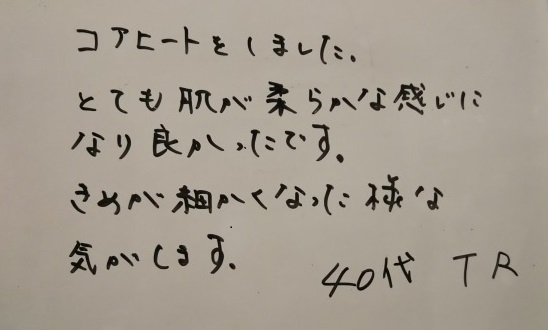 コアヒートをしました。
とても肌が柔らかな感じに
なり良かったです。
きめが細かくなった様な
気がします。
40代 TR